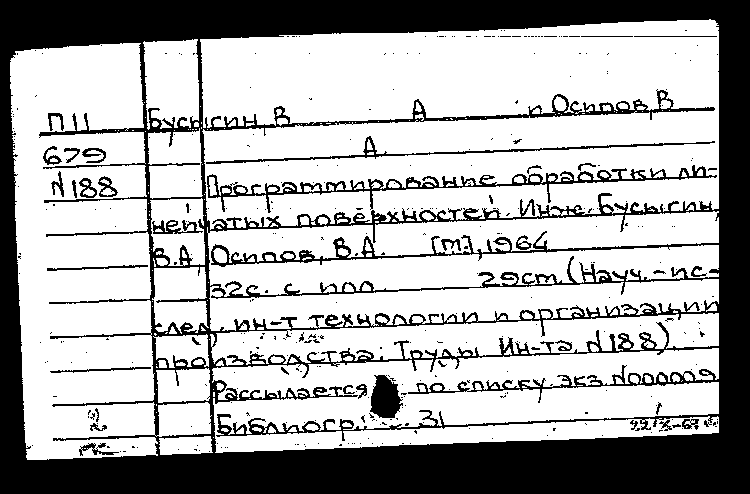 П11 Бусыгин, В А и Осипов, В
679 А
N188 Программирование обработки ли-
нейчатых поверхностей. Инж. Бусыгин,
В.А, Осипов, В.А. [М.], 1964
32с. с илл. 29см. (Науч.-ис-
след. ин-т технологии и организации
производства. Труды Ин-та. N188)
Рассылается по списку экз. N000009
2 Библиогр.: 31